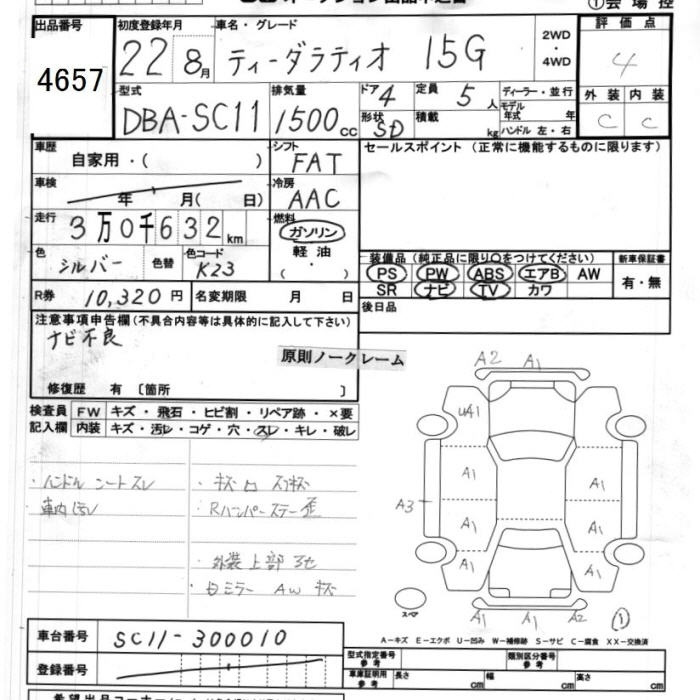 ①会場控
出品番号 4657
初度登録年月 22 8月
車名・グレード ティーダラティオ 15G
2WD・4WD
評価点 4
型式 DBA-SC11
排気量 1500cc
ドア 4
形状 SD
定員 5人
積載 kg
ディーラー・並行
モデル年式 年
ハンドル 左・右
外装 C
内装 C
車歴 自家用・( )
シフト FAT
車検 年 月( 日)
冷房 AAC
走行 3万0千632km
燃料 ガソリン 軽油 ・
色 シルバー 色替
色コード K23
R券 10,320円
名変期限 月 日
セールスポイント (正常に機能するものに限ります)
装備品 (純正品に限り○をつけてください)
PS PW ABS エアB AW
SR ナビ TV カワ
新車保証書
有・無
後日品
注意事項申告欄(不具合内容等は具体的に記入して下さい)
ナビ不良
原則ノークレーム
修復歴 有 〔箇所 〕
検査員記入欄
FW キズ・飛石・ヒビ割・リペア跡・×要
内装 キズ・汚レ・コゲ・穴・スレ・キレ・破レ
・ハンドル シートスレ
・車内汚レ
・Rバンパーステー歪
・外装上部
・ミラー AW キズ
A2 A1
UA1
A1 A1
A3
A1 A1
A1 A1
スペア
A1 A1 A2
①
A-キズ E-エクボ U-凹み W-補修跡 S-サビ C-腐食 XX-交換済
車台番号 SC11-300010
登録番号
型式指定番号 参考
類別区分番号 参考
車庫証明用 参考 長さ cm 幅 cm 高さ cm